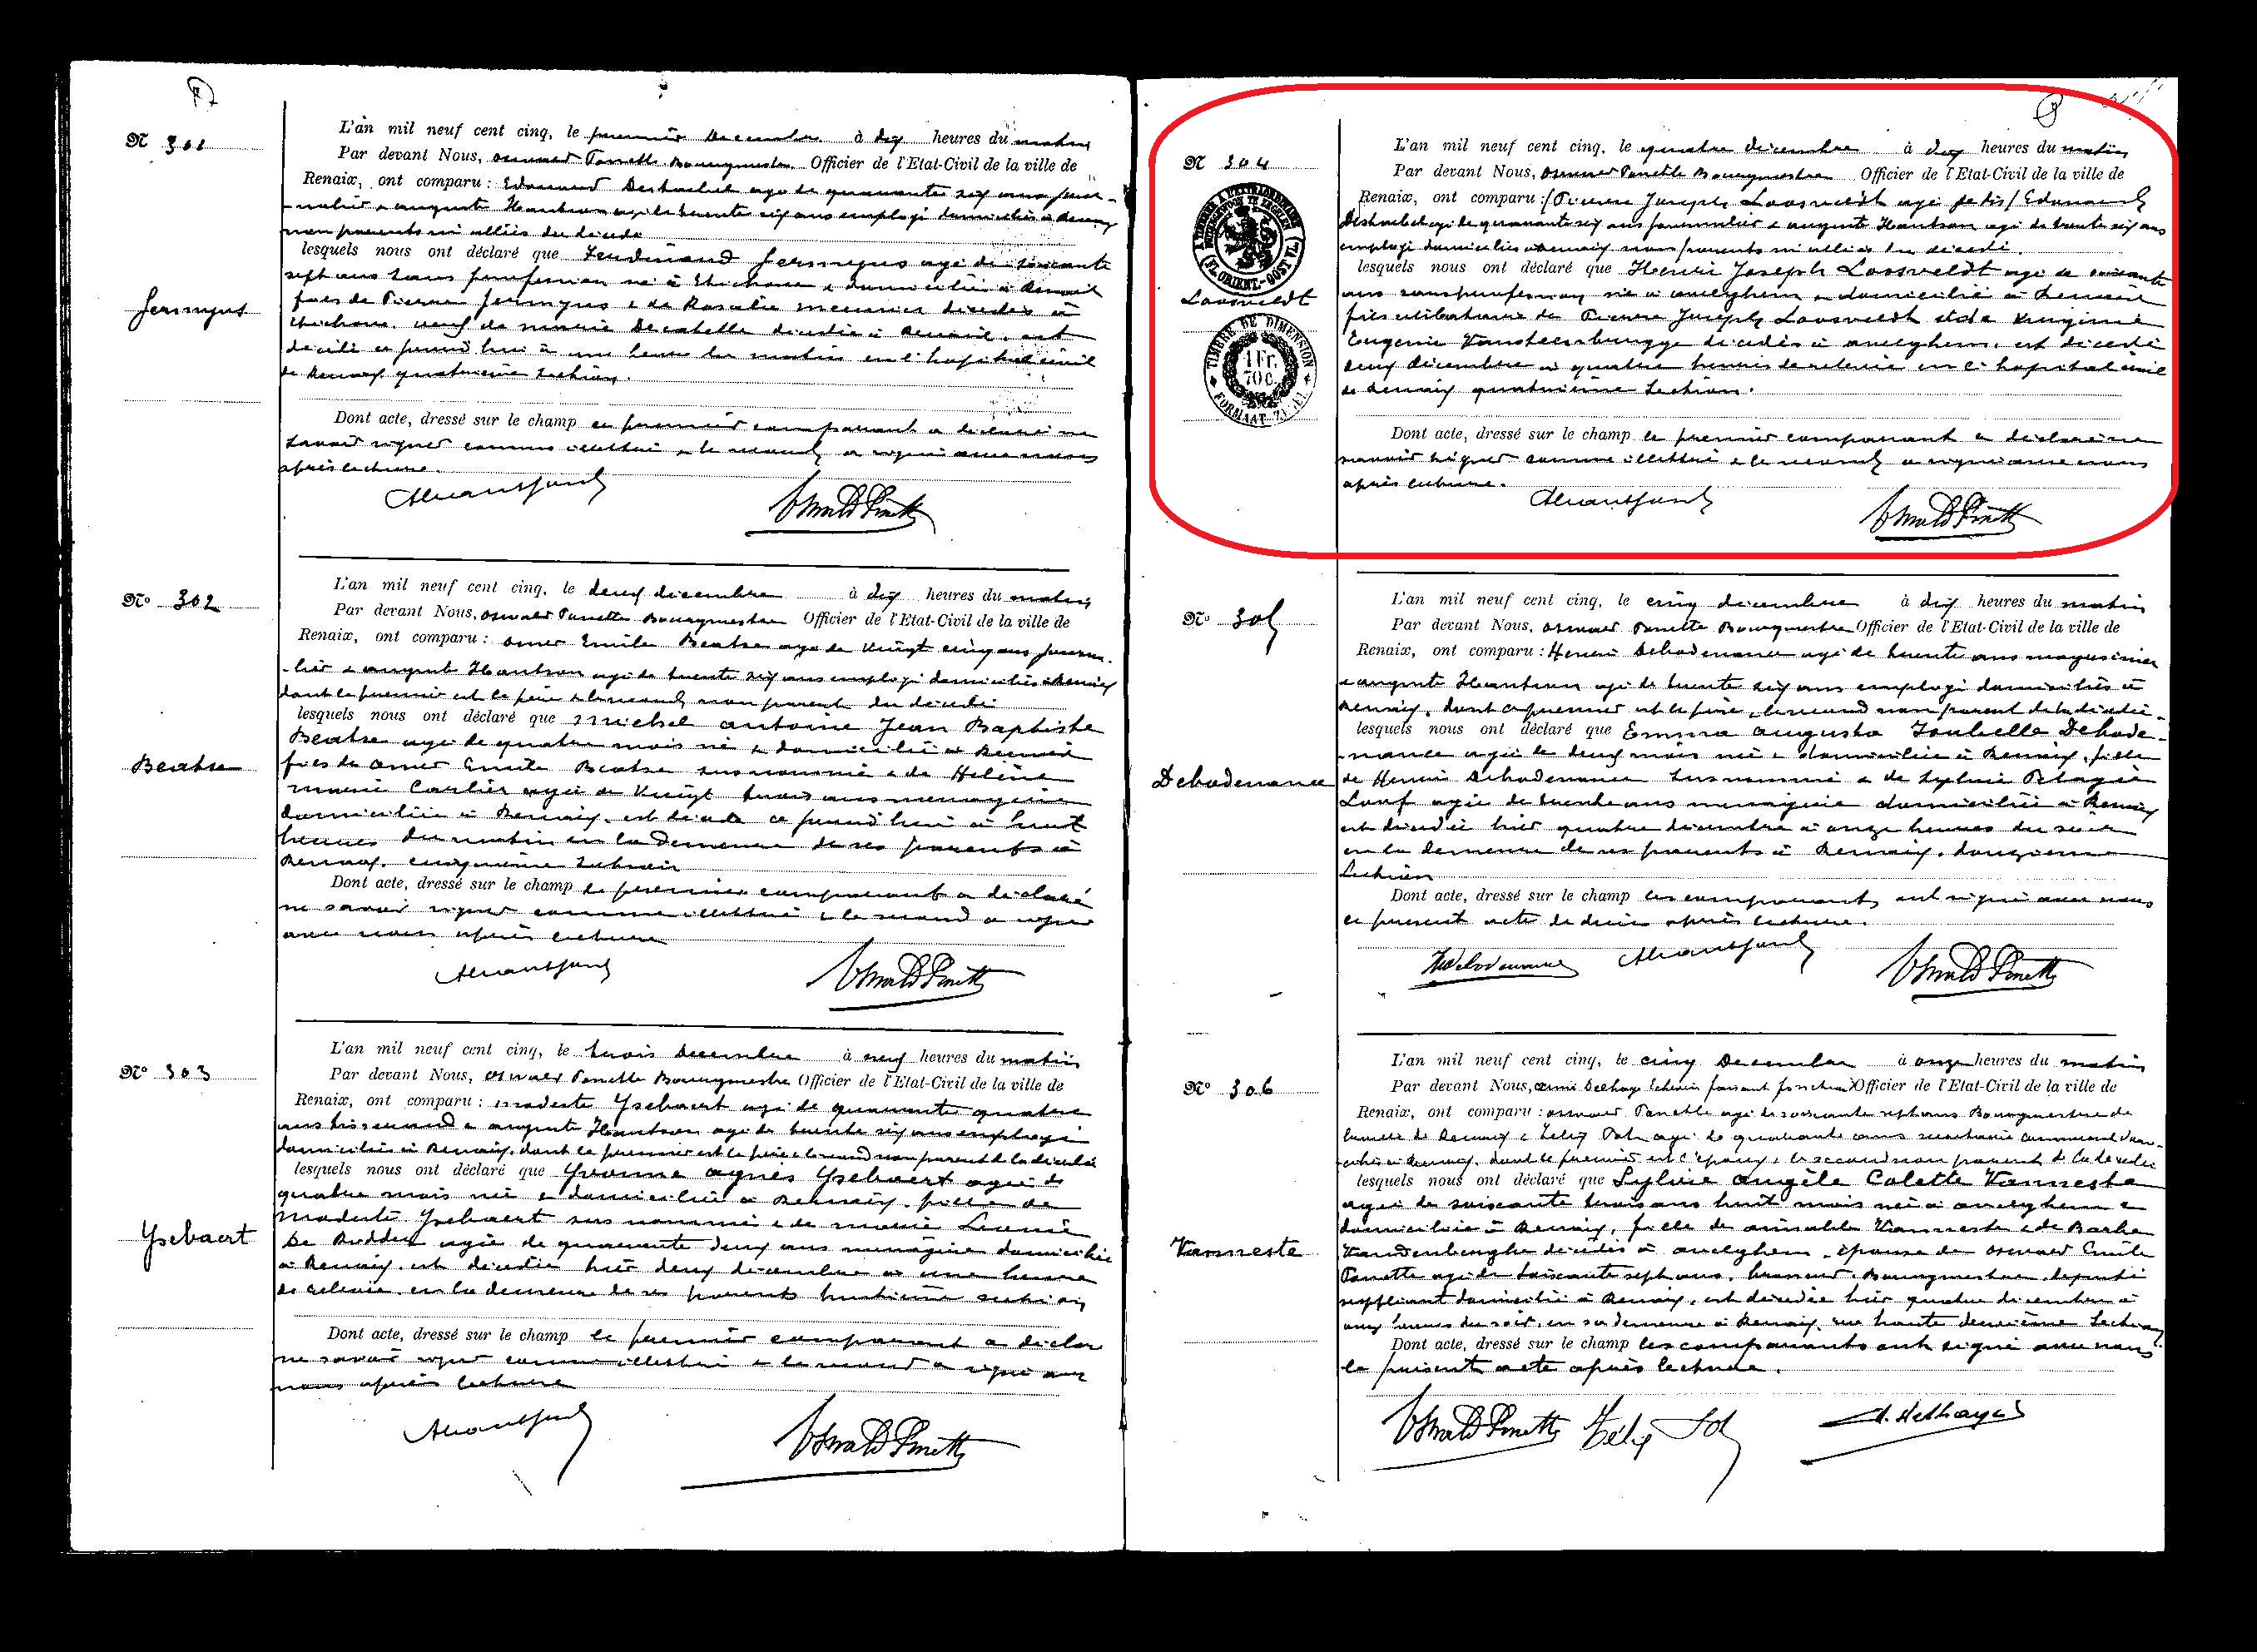 N 301
Fermyus
L'an mil neuf cent cinq, le premier Decembre à dix heures du matin
Par devant Nous, Bourgmestre Officier de l'Etat-Civil de la ville de
Renaix, ont comparu : Edouard age de quarante six ans jour-
-nalier & auguste Hantson age de trente six ans employé domiciliés à Renaix
non parents ni alliés du décédé
lesquels nous ont déclaré que Ferdinand agé de soixante
sept ans sans profession né à & domicilié à Renaix
fils de Pierre & de Rosalie décédés à
veuf de marie décédée à Renaix, est
décédé ce jourd'hui à une heure du matin en l'hopital civil
de Renaix quatrième section.
Dont acte, dressé sur le champ le premier comparant a déclaré ne
savoir signer comme illettré & le second a signé avec nous
après lecture.
N° 302
Beatse
L'an mil neuf cent cinq, le deux décembre à dix heures du matin
Par devant Nous, Bourgmestre Officier de l'Etat-Civil de la ville de
Renaix, ont comparu : omer Emile Beatse age de vingt cinq ans journa-
-lier & auguste Hantson agé de trente six ans employé domiciliés à Renaix
dont le premier est le père & le second non parent du décédé
lesquels nous ont déclaré que michel antoine Jean Baptiste
Beatse agé de quatre mois né & domicilié à Renaix
fils de omer Emile Beatse susnommé & de Helène
marie Carlier agée de vingt trois ans menagère
domiciliée à Renaix, est décédé ce jourd'hui à huit
heures du matin en la demeure de ses parents à
Renaix, cinquième section
Dont acte, dressé sur le champ le premier comparant a déclaré
ne savoir signer comme illettré & le second a signé
avec nous après lecture
N° 303
Ysebaert
L'an mil neuf cent cinq, le trois Decembre à neuf heures du matin
Par devant Nous, Bourgmestre Officier de l'Etat-Civil de la ville de
Renaix, ont comparu : modeste Ysebaert agé de quarante quatre
ans tisserand & auguste Hantson agé de trente six ans employé
domiciliés à Renaix, dont le premier est le père & le second non parent de la décédée
lesquels nous ont déclaré que Yvonne agnès Ysebaert agée de
quatre mois née & domiciliée à Renaix, fille de
modeste Ysebaert sus nommé & de marie
De Ridder agée de quarante deux ans menagère domiciliée
à Renaix, est décédée hier deux décembre à une heure
de relevée en la demeure de ses parents huitième section
Dont acte, dressé sur le champ le premier comparant a déclaré
ne savoir signer comme illettré & le second a signé avec
nous après lecture
N 304
Loosveldt
TIMBRE DE DIMENSION
1 Fr.
70 c.
L'an mil neuf cent cinq, le quatre décembre à dix heures du matin
Par devant Nous, Bourgmestre Officier de l'Etat-Civil de la ville de
Renaix, ont comparu : Pierre Joseph Loosveldt agé Edouard
agé de quarante six ans journalier & auguste Hantson agé de trente six ans
employé domiciliés à Renaix non parents ni alliés du décédé.
lesquels nous ont déclaré que Henri Joseph Loosveldt agé de soixante
ans sans profession né à auelghem & domicilié à Renaix
fils célibataire de Pierre Joseph Loosveldt et de Virginie
Eugenie Vansteenbrugge décédés à auelghem, est décédé
deux décembre à quatre heures de relevée en l'hopital civil
de Renaix quatrième section.
Dont acte, dressé sur le champ le premier comparant a déclaré ne
savoir signer comme illettré & le second a signé avec nous
après lecture.
N° 305
Debodenance
L'an mil neuf cent cinq, le cinq décembre à dix heures du matin
Par devant Nous, Bourgmestre Officier de l'Etat-Civil de la ville de
Renaix, ont comparu : Henri Debodenance agé de trente ans magasinier
& auguste Hantson agé de trente six ans employé domiciliés à
Renaix, dont le premier est le père, le second non parent de la décédée
lesquels nous ont déclaré que Emma augusta Isabelle Debode-
-nance agée de deux mois née & domiciliée à Renaix, fille
de Henri Debodenance susnommé & de Sylvie Pélagie
agée de trente ans menagère domiciliée à Renaix
est décédée hier quatre décembre à onze heures du soir
en la demeure de ses parents à Renaix, douzième
section
Dont acte, dressé sur le champ les comparants ont signé avec nous
le présent acte de décès après lecture.
N° 306
Vanneste
L'an mil neuf cent cinq, le cinq Decembre à onze heures du matin
Par devant Nous, échevin faisant fonction Officier de l'Etat-Civil de la ville de
Renaix, ont comparu : agé de soixante sept ans Bourgmestre de
la ville de Renaix & Felix agé de quarante ans secrétaire communal domi-
-ciliés à Renaix, dont le premier est l'époux, le second non parent de la décédée
lesquels nous ont déclaré que Sylvie angèle Colette Vanneste
agée de soixante trois ans huit mois née à auelghem &
domiciliée à Renaix, fille de aimable Vanneste & de Barbe
Vandenberghe décédés à auelghem, épouse de Emile
agé de soixante sept ans, brasseur, Bourgmestre, député
suppléant domicilié à Renaix, est décédée hier quatre décembre à
onze heures du soir, en sa demeure à Renaix, rue haute deuxième section
Dont acte, dressé sur le champ les comparants ont signé avec nous
le présent acte après lecture.